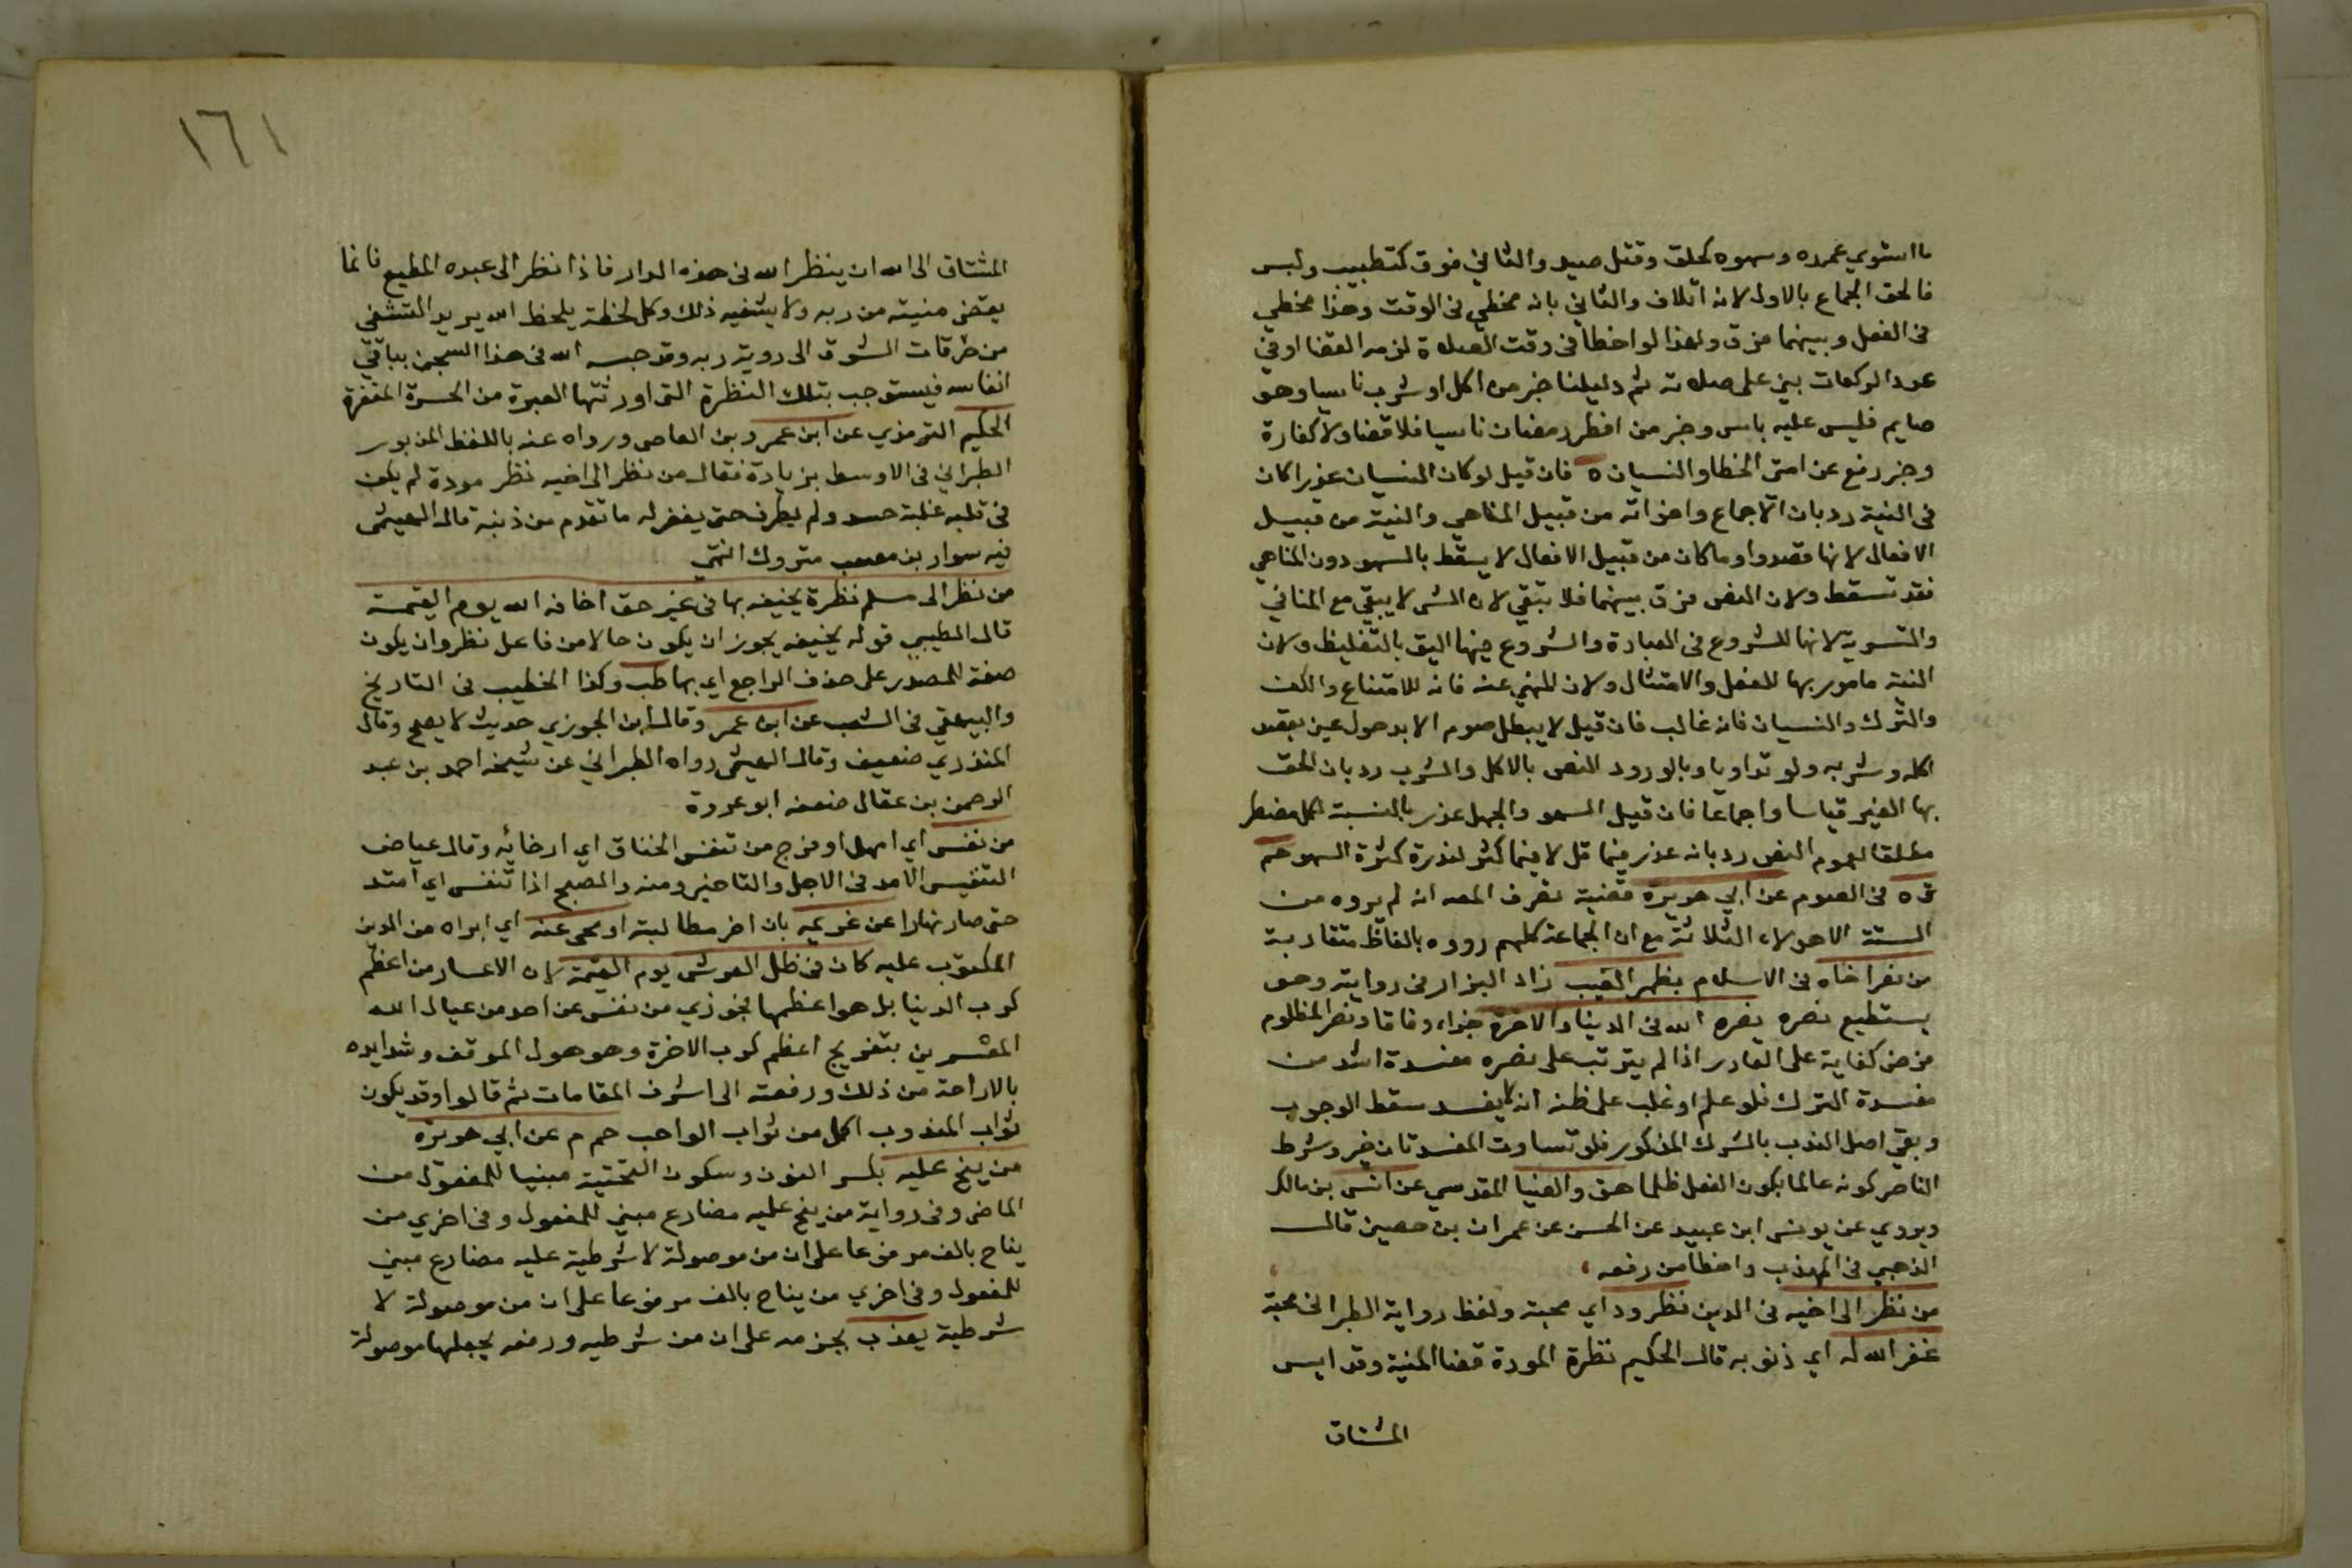 ما استوي عمده وسهوه كحلق وقتل صيد والثاني فوق كتطييب ولبس
فالحق الجماع بالاول لانه اتلاف والثاني بانه مخطي في الوقت وهذا مخطي
في الفعل وبينهما فرق ولهذا لو اخطا في وقت الصلاة لزمه القضا او في
عدد الركعات بني على صلاته ثم دليلنا خبر من اكل او شرب ناسيا وهو
صايم فليس عليه باس وخبر من افطر رمضان ناسيا فلا قضا ولا كفارة
وخبر رفع عن امتي الخطا والنسيان ه فان قيل لو كان النسيان عذرا كان
في النية رد بان الاجماع واخواته من قبيل المناهي والنية من قبيل
الافعال لانها قصد وما كان من قبيل الافعال لا يسقط بالسهو دون المناهي
فقد تسقط ولان النص فرق بينهما فلا تبقي لان الشي لا يبقي مع المنافي
والتسوية لانها للشروع في العبادة والشروع فيها اليق بالتغليظ ولان
النية مامور بها للفعل والامتثال ولان المنهي عنه فانه للامتناع والكف
والترك والنسيان فانه غالب فان قيل لا يبطل صوم الا بدخول عين بقصد
اكله وشربه ولو تداويا وبالورود النص بالاكل والشرب رد بان الحق
بها الغير قياسا واجماعا فان قيل السهو والجهل عذر بالنسبة لكل مفطر
مطلقا لعموم النص رد بانه عذر فيما قل لا فيما كثر لندرة كثرة السهو حم
ق ه في الصوم عن ابي هريرة قضية تصرف المصه انه لم يروه من
الستة الا هولاء الثلاثة مع ان الجماعة كلهم رووه بالفاظ متقاربة
من نصر اخاه في الاسلام بظهر الغيب زاد البزار في روايته وهو
يستطيع نصره نصره الله في الدينا والاخرة جزاء وفاقا ونصر المظلوم
فرض كفاية على القادر اذا لم يترتب على نصره مفسدة اشد من
مفسدة الترك فلو علم او غلب على ظنه انه لا يفيد سقط الوجوب
وبقي اصل الندب بالشرط المذكور فلو تساوت المفسدتان خير وشرط
الناصر كونه عالما بكون الفعل ظلما هق والضيا المقدسي عن انس بن مالك
ويروي عن يونس ابن عبيد عن الحسن عن عمران بن حصين قال
الذهبي في المهذب واخطا من رفعه
من نظر الى اخيه في الدين نظر ود اي محبة ولفظ رواية الطبراني محبة
غفر الله له اي ذنوبه قال الحكيم نظرة المودة قضا المنية وقد ايس
المشتاق
١٦١
المشتاق الى الله ان ينظر الله في هذه الدار فاذا نظر الى عبده المطيع فانما
يقضي منيته من ربه ولا يشفيه ذلك وكل لحظة يلحظ الله يريد التشفي
من حرقات الشوق الى روية ربه وقد حبسه الله في هذا السجن بباقي
انفاسه فيستوجب بتلك النظرة التي اورثتها العبرة من الحسرة المغفرة
الحكيم الترمذي عن ابن عمرو بن العاصي ورواه عنه باللفظ المزبور
الطبراني في الاوسط بزيادة فقال من نظر الى اخيه نظر مودة لم يكن
في قلبه غلبة حسد ولم يطرف حتى يغفر له ما تقدم من ذنبه قال الهيثمي
فيه سوار بن مصعب متروك انتهي
من نظر الى مسلم نظرة يخيفه بها في غير حق اخافه الله يوم القيمة
قال الطيبي قوله يخيفه يجوز ان يكون حالا من فاعل نظر وان يكون
صفة للمصدر على حذف الراجع اي بها طب وكذا الخطيب في التاريخ
والبيهقي في الشعب عن ابن عمر وقال ابن الجوزي حديث لا يصح وقال
المنذري ضعيف وقال الهيثمي رواه الطبراني عن شيخه احمد بن عبد
الرحمن بن عقال ضعفه ابو عروة
من نفس اي امهل او فرج من تنفس الخناق اي ارخائه وقال عياض
التنفيس الامد في الاجل والتاخير ومنه والصبح اذا تنفس اي امتد
حتى صار نهارا عن غريمه بان اخر مطالبته او محى عنه اي ابراه من الدين
المكتوب عليه كان في ظل العرش يوم القيمة لان الاعسار من اعظم
كرب الدينا بل هو اعظمها فجوزي من نفس عن احد من عيال الله
المعسرين بتفريج اعظم كرب الاخرة وهو هول الموقف وشدايده
بالاراحة من ذلك ورفعته الى اشرف المقامات ثم قالوا وقد يكون
ثواب المندوب اكمل من ثواب الواجب حم م عن ابي هريرة
من ينح عليه بكسر النون وسكون التحتية مبنيا للمفعول من
الماضي وفي رواية من ينح عليه مضارع مبني للمفعول وفي اخري من
يناح بالف مرفوعا على ان من موصولة لا شرطية عليه مضارع مبني
للمفعول وفي اخري من يناح بالف مرفوعا على ان من موصولة لا
شرطية يعذب بجزمه على ان من شرطيه ورفعه بجعلها موصولة